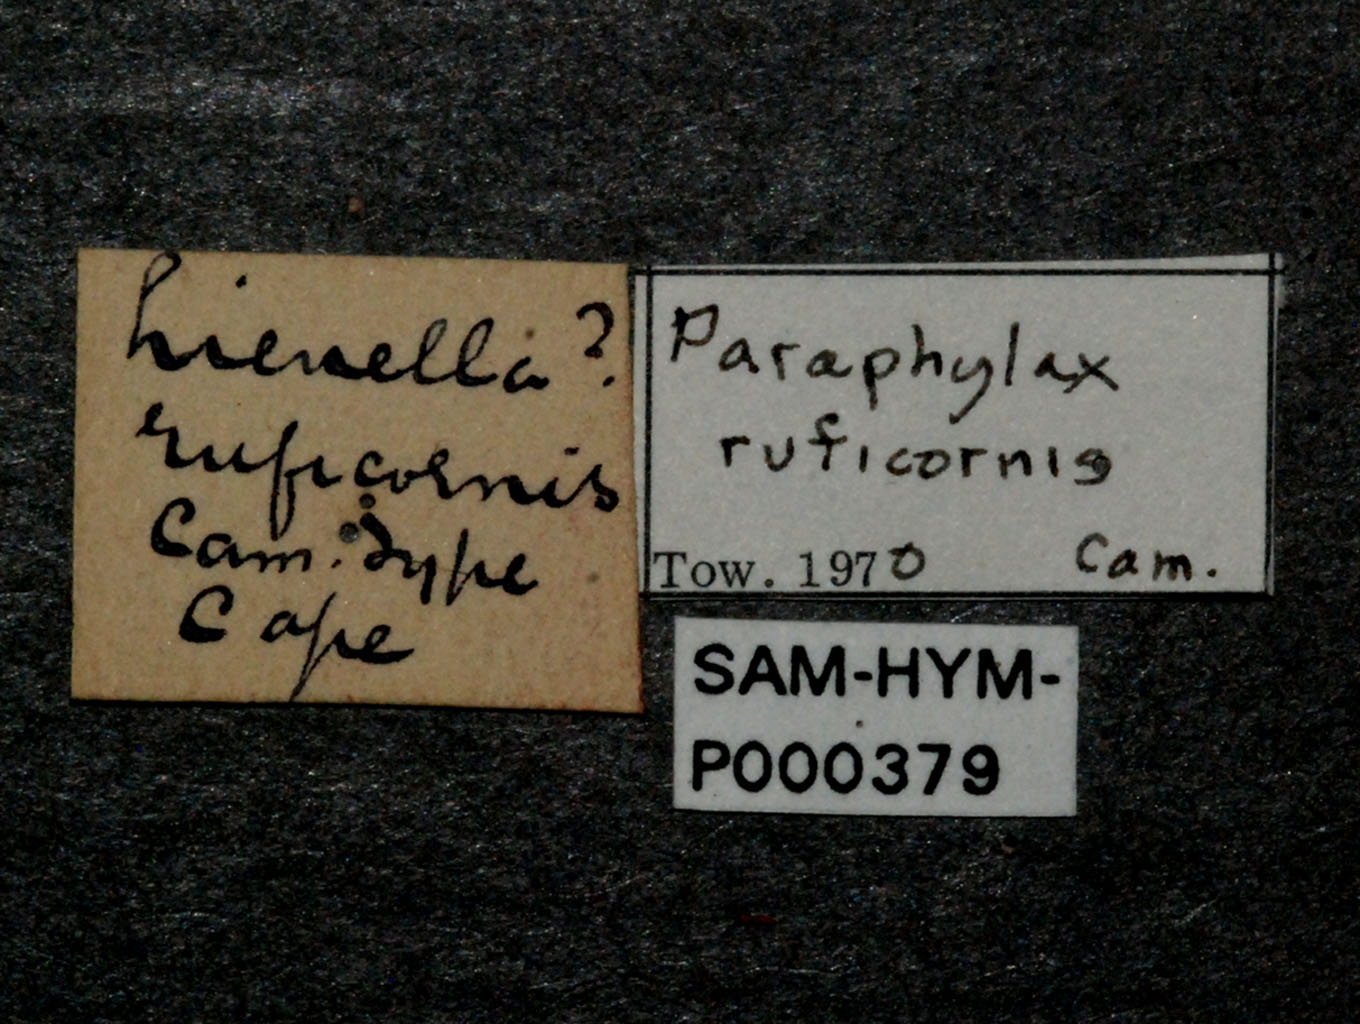 hienella?
ruficornis
Cam. Type
Cape
Paraphylax
ruficornis
Tow. 1970 Cam.
SAM-HYM-
P000379